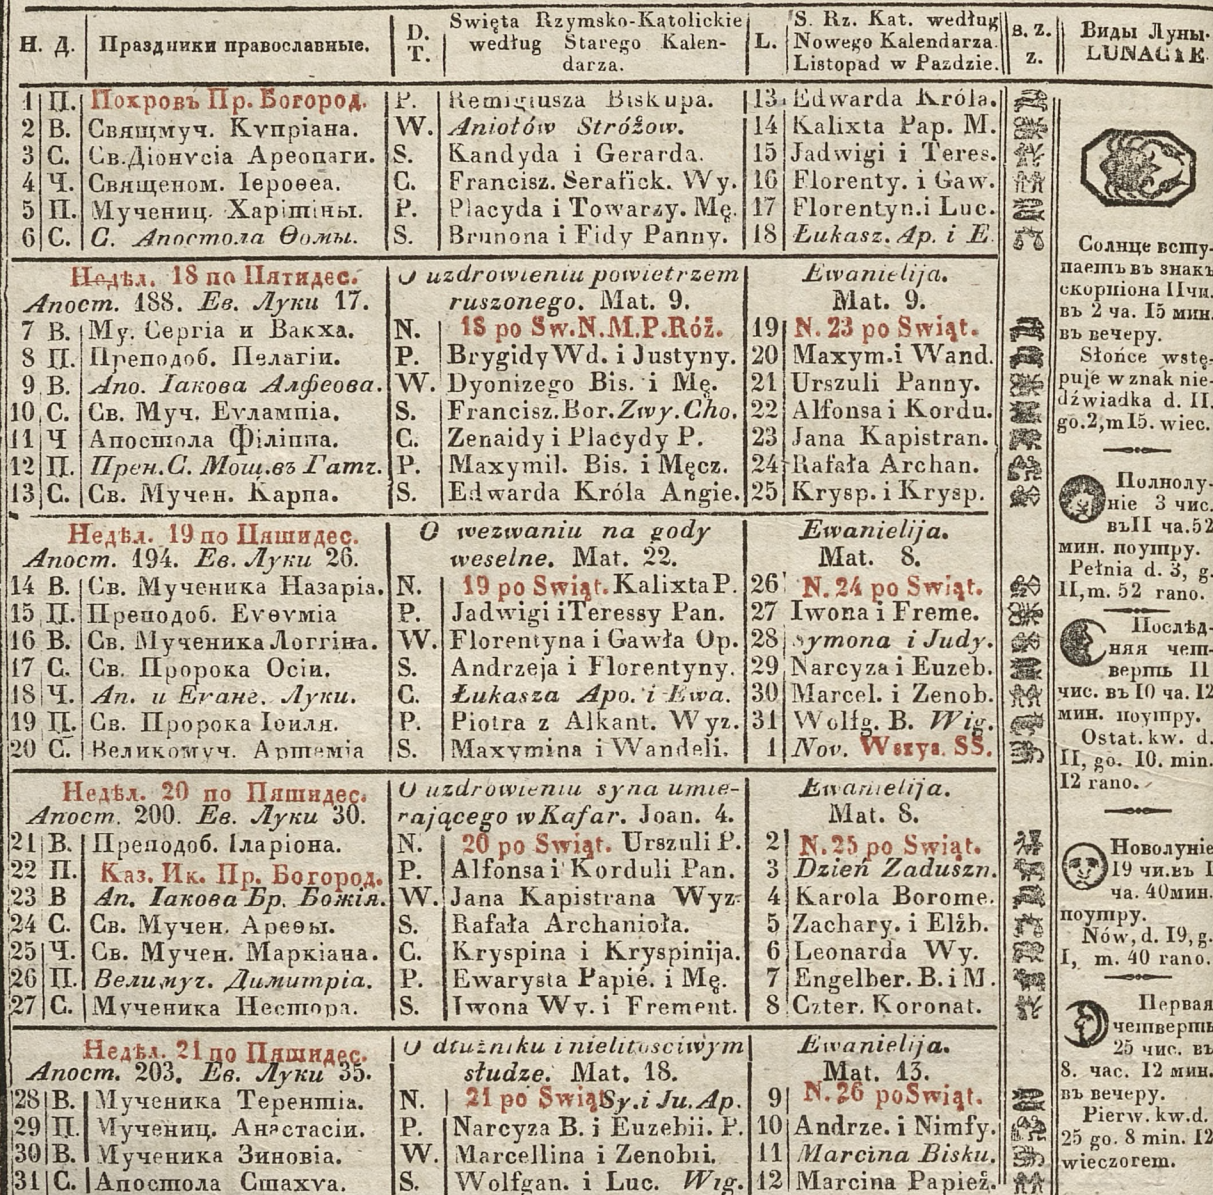 Н. Д. Праздники православные. D. T. Swięta Rzymsko-Kątolickie według Starego Kalendarza. L. S. Rz. Kat. według Nowego Kalendarza. Listopad w Pazdzie. в. z. z. Виды Луны. LUNACIE
1 П. Покровъ Пр. Богород. P. Remigiusza Biskupa. 13 Edwarda Króla.
2 В. Свящмуч. Купріана. W. Aniołów Stróżow. 14 Kalixta Pap. M.
3 С. Св.Діонусіа Ареопаги. S. Kandyda i Gerarda. 15 Jadwigi i Teres.
4 Ч. Священом. Іероѳеа. C. Francisz. Serafick. Wy. 16 Florenty. i Gaw.
5 П. Мучениц. Харітіны. P. Placyda i Towarzy. Mę. 17 Florentyn.i Luc.
6 С. С. Апостола Ѳомы. S. Brunona i Fidy Panny. 18 Łukasz. Ap. i E.
Недѣл. 18 по Пятидес. O uzdrowieniu powietrzem Ewanielija.
Апост. 188. Ев. Луки 17. ruszonego. Mat. 9. Mat. 9.
7 В. Му. Сергіа и Вакха. N. 18 po Sw.N.M.P.Róż. 19 N. 23 po Swiąt.
8 П. Преподоб. Пелагіи. P. Brygidy Wd. i Justyny. 20 Maxym.i Wand.
9 В. Апо. Іакова Алфеова. W. Dyonizego Bis. i Mę. 21 Urszuli Panny.
10 С. Св. Муч. Еѵлампіа. S. Francisz.Bor.Zwy.Cho. 22 Alfonsa i Kordu.
11 Ч Апостола Філіппа. C. Zenaidy i Placydy P. 23 Jana Kapistran.
12 П. Прен.С. Мощ.въ Гатч. P. Maxymil. Bis. i Męcz. 24 Rafała Archan.
13 С. Св. Мучен. Карпа. S. Edwarda Króla Angie. 25 Krysp. i Krysp.
Недѣл. 19 по Пятидес. O wezwaniu na gody Ewanielija.
Апост. 194. Ев. Луки 26. weselne. Mat. 22. Mat. 8.
14 В. Св. Мученика Назаріа. N. 19 po Swiąt. Kalixta P. 26 N. 24 po Swiąt.
15 П. Преподоб. Еѵѳѵміа P. Jadwigi i Teressy Pan. 27 Iwona i Freme.
16 В. Св. Мученика Логгіна. W. Florentyna i Gawła Op. 28 Symona i Judy.
17 С. Св. Пророка Осіи. S. Andrzeja i Florentyny. 29 Narcyza i Euzeb.
18 Ч. Ап. и Еванг. Луки. C. Łukasza Apo. i Ewa. 30 Marcel. i Zenob.
19 П. Св. Пророка Іоиля. P. Piotra z Alkant. Wyz. 31 Wolfg. B. Wig.
20 С. Великомуч. Артеміа S. Maxymina i Wandeli. 1 Nov. Wszys. SS.
Недѣл. 20 по Пятидес. O uzdrowieniu syna umie- Ewanielija.
Апост. 200. Ев. Луки 30. rającego w Kafar. Joan. 4. Mat. 8.
21 В. Преподоб. Іларіона. N. 20 po Swiąt. Urszuli P. 2 N.25 po Swiąt.
22 П. Каз. Ик. Пр. Богород. P. Alfonsa i Korduli Pan. 3 Dzień Zaduszn.
23 В Ап. Іакова Бр. Божія. W. Jana Kapistrana Wyz. 4 Karola Borome.
24 С. Св. Мучен. Ареѳы. S. Rafała Archanioła. 5 Zachary. i Elżb.
25 Ч. Св. Мучен. Маркіана. C. Kryspina i Kryspinija. 6 Leonarda Wy.
26 П. Велимуч. Димитріа. P. Ewarysta Papié. i Mę. 7 Engelber. B. i M.
27 С. Мученика Нестора. S. Iwona Wy. i Frement. 8 Czter. Koronat.
Недѣл. 21 по Пятидес. O dłużniku i nielitosciwym Ewanielija.
Апост. 203. Ев. Луки 35. słudze. Mat. 18. Mat. 13.
28 В. Мученика Терентіа. N. 21 po Swiąt Sy.i Ju.Ap. 9 N. 26 po Swiąt.
29 П. Мучениц. Анастасіи. P. Narcyza B. i Euzebii. P. 10 Andrze. i Nimfy.
30 В. Мученика Зиновіа. W. Marcellina i Zenobii. 11 Marcina Bisku.
31 С. Апостола Стахѵа. S. Wolfgan. i Luc. Wig. 12 Marcina Papież.
Солнце всту-
паетъ въ знакъ
скорпіона IIчи.
въ 2 ча. 15 мин.
въ вечеру.
Słońce wstę-
puje w znak nie-
dźwiadka d. II.
go.2,m15. wiec.
Полнолу-
ніе 3 чис.
въII ча.52
мин. поутру.
Pełnia d. 3, g.
II,m. 52 rano.
Послѣд-
няя чет-
верть II
чис. въ 10 ча. 12
мин. поутру.
Ostat. kw. d.
II, go. 10. min.
12 rano.
Новолуніе
19 чи.въ I
ча. 40мин.
поутру.
Nów, d. 19, g.
I, m. 40 rano.
Первая
четверть
25 чис. въ
8. час. 12 мин.
въ вечеру.
Pierw. kw.d.
25 go. 8 min. 12
wieczorem.